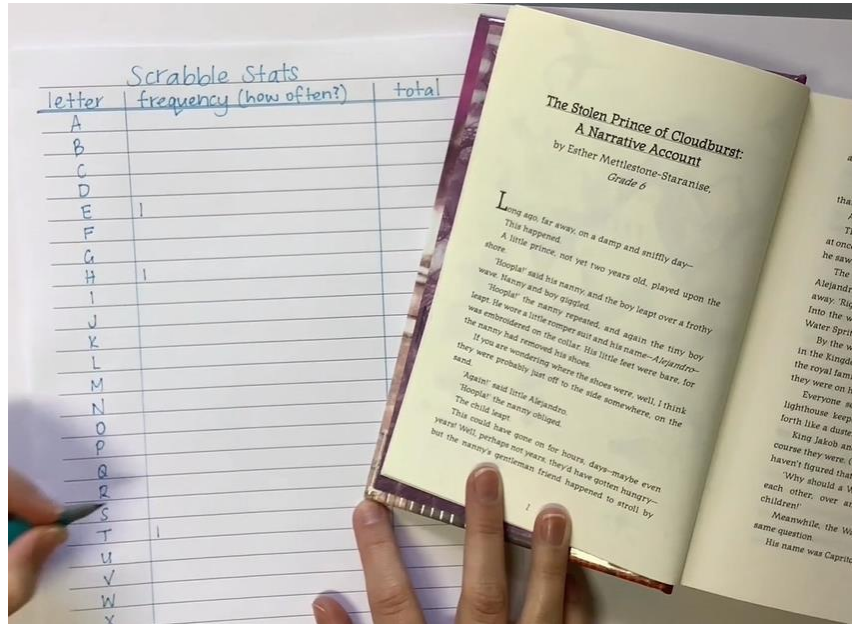 Scrabble Stats
letter frequency (how often?) total
A
B
C
D
E |
F
G
H |
I
J
K
L
M
N
O
P
Q
R
S
T |
U
V
W
X
The Stolen Prince of Cloudburst:
A Narrative Account
by Esther Mettlestone-Staranise,
Grade 6
Long ago, far away, on a damp and sniffly day—
This happened.
A little prince, not yet two years old, played upon the
shore.
'Hoopla!' said his nanny, and the boy leapt over a frothy
wave. Nanny and boy giggled.
'Hoopla!' the nanny repeated, and again the tiny boy
leapt. He wore a little romper suit and his name—Alejandro—
was embroidered on the collar. His little feet were bare, for
the nanny had removed his shoes.
If you are wondering where the shoes were, well, I think
they were probably just off to the side somewhere, on the
sand.
'Again!' said little Alejandro.
'Hoopla!' the nanny obliged.
The child leapt.
This could have gone on for hours, days—maybe even
years! Well, perhaps not years, they'd have gotten hungry—
but the nanny's gentleman friend happened to stroll by
1
at once
he saw
The
Alejandr
away. 'Rig
Into the w
Water Sprit
By the w
in the Kingd
the royal fam
they were on h
Everyone s
lighthouse keep
forth like a duste
King Jakob an
course they were, (
haven't figured that
'Why should a W
each other, over an
children!'
Meanwhile, the Wa
same question.
His name was Caprico